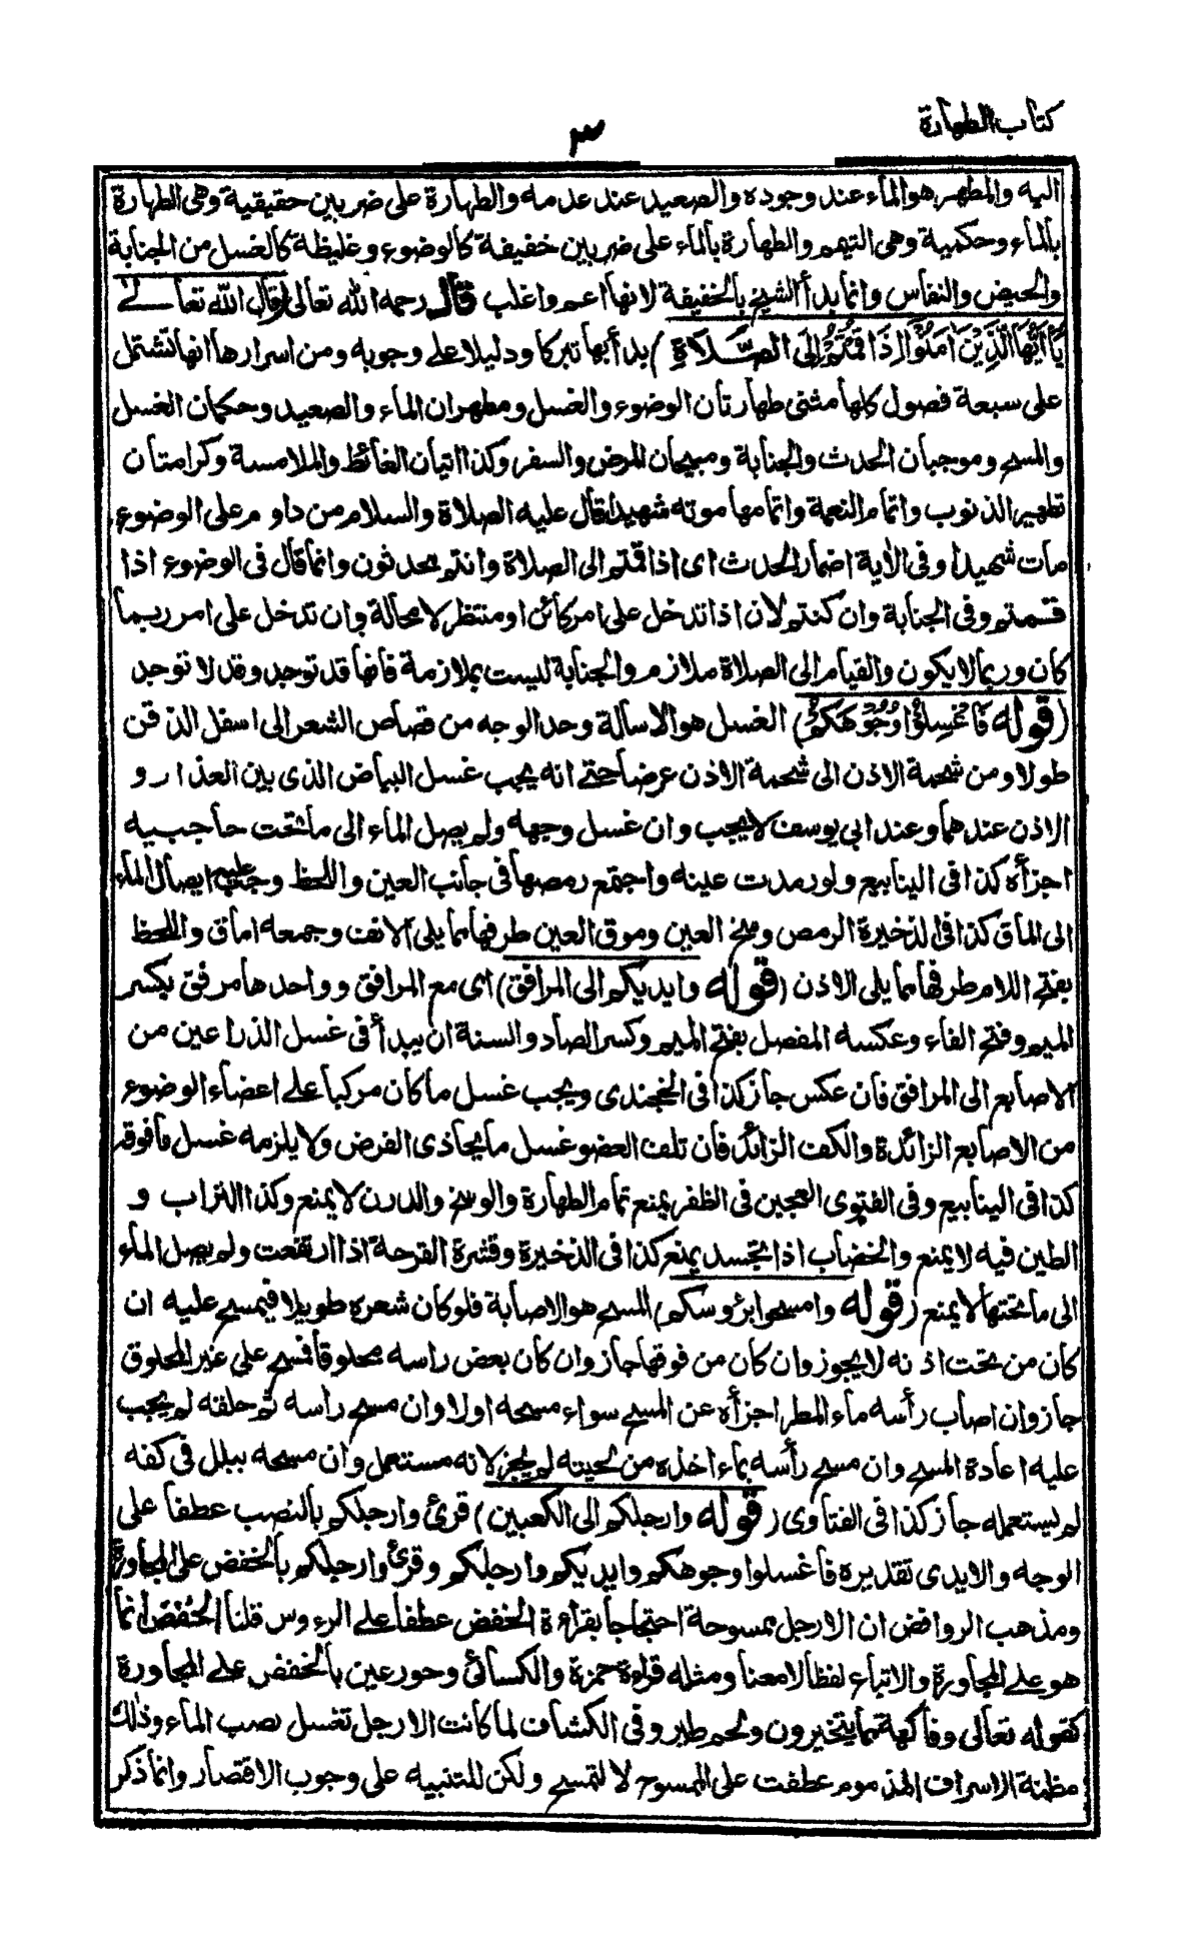 كتاب الطهارة
٣
اليه والمطهر هو الماء عند وجوده والصعيد عند عدمه والطهارة على ضربين حقيقية وهى الطهارة
بالماء وحكمية وهى التيمم والطهارة بالماء على ضربين خفيفة كالوضوء وغليظة كالغسل من الجنابة
والحيض والنفاس وانما بدأ الشيخ بالخفيفة لانها اعم واغلب قال رحمه الله تعالى (قال الله تعالى
يَآ اَيُّهَا الَّذِيْنَ اٰمَنُوْا اِذَا قُمْتُمْ اِلَى الصَّلَاةِ) بدأ بها تبركا ودليلا على وجوبه ومن اسرارها انها تشتمل
على سبعة فصول كلها مثنى طهارتان الوضوء والغسل ومطهران الماء والصعيد وحكمان الغسل
والمسح وموجبان الحدث والجنابة ومبيحان المرض والسفر وكذا اتيان الغائط والملامسة وكرامتان
تطهير الذنوب واتمام النعمة واتمامها موته شهيدا قال عليه الصلاة والسلام من داوم على الوضوء
مات شهيدا وفى الاية اضمار الحدث اى اذا قمتم الى الصلاة وانتم محدثون وانما قال فى الوضوء اذا
قمتم وفى الجنابة وان كنتم لان اذا تدخل على امر كائن او منتظر لا محالة وان تدخل على امر ربما
كان وربما لا يكون والقيام الى الصلاة ملازم والجنابة ليست بملازمة فانها قد توجد وقد لا توجد
(قوله فَاغْسِلُوْا وُجُوْهَكُمْ) الغسل هو الاسالة وحد الوجه من قصاص الشعر الى اسفل الذقن
طولا ومن شحمة الاذن الى شحمة الاذن عرضا حتى انه يجب غسل البياض الذى بين العذار و
الاذن عندهما وعند ابى يوسف لا يجب وان غسل وجهه ولم يصل الماء الى ما تحت حاجبيه
اجزأه كذا فى الينابيع ولو رمدت عينه واجتمع رمصها فى جانب العين واللحظ وجب عليه ايصال الماء
الى الماق كذا فى الذخيرة الرمص وسخ العين وموق العين طرفها مما يلى الانف وجمعه اماق واللحظ
بفتح اللام طرفها مما يلى الاذن (قوله وايديكم الى المرافق) اى مع المرافق وواحدها مرفق بكسر
الميم وفتح الفاء وعكسه المفصل بفتح الميم وكسر الصاد والسنة ان يبدأ فى غسل الذراعين من
الاصابع الى المرافق فان عكس جاز كذا فى الخجندى ويجب غسل ما كان مركبا على اعضاء الوضوء
من الاصابع الزائدة والكف الزائد فان تلف العضو غسل ما يحاذى الفرض ولا يلزمه غسل ما فوقه
كذا فى الينابيع وفى الفتوى العجين فى الظفر يمنع تمام الطهارة والوسخ والدرن لا يمنع وكذا التراب و
الطين فيه لا يمنع والخضاب اذا تجسد يمنع كذا فى الذخيرة وقشرة القرحة اذا ارتفعت ولم يصل الماء
الى ما تحتها لا يمنع (قوله وامسحوا برؤسكم) المسح هو الاصابة فلو كان شعره طويلا فيمسح عليه ان
كان من تحت اذنه لا يجوز وان كان من فوقها جاز وان كان بعض راسه محلوقا فمسح على غير المحلوق
جاز وان اصاب رأسه ماء المطر اجزأه عن المسح سواء مسحه اولا وان مسح راسه ثم حلقه لم يجب
عليه اعادة المسح وان مسح رأسه بماء اخذه من لحيته لم يجز لانه مستعمل وان مسحه ببلل فى كفه
لم يستعمله جاز كذا فى الفتاوى (قوله وارجلكم الى الكعبين) قرئ وارجلكم بالنصب عطفا على
الوجه والايدى تقديره فاغسلوا وجوهكم وايديكم وارجلكم وقرئ وارجلكم بالخفض على المجاورة
ومذهب الروافض ان الارجل ممسوحة احتجاجا بقراءة الخفض عطفا على الرءوس قلنا الخفض انما
هو على المجاورة والاتباع لفظا لا معنا ومثله قراءة حمزة والكسائى وحور عين بالخفض على المجاورة
كقوله تعالى وفاكهة مما يتخيرون ولحم طير وفى الكشاف لما كانت الارجل تغسل بصب الماء وذلك
مظنة الاسراف المذموم عطفت على الممسوح لا لتمسح ولكن للتنبيه على وجوب الاقتصار وانما ذكر